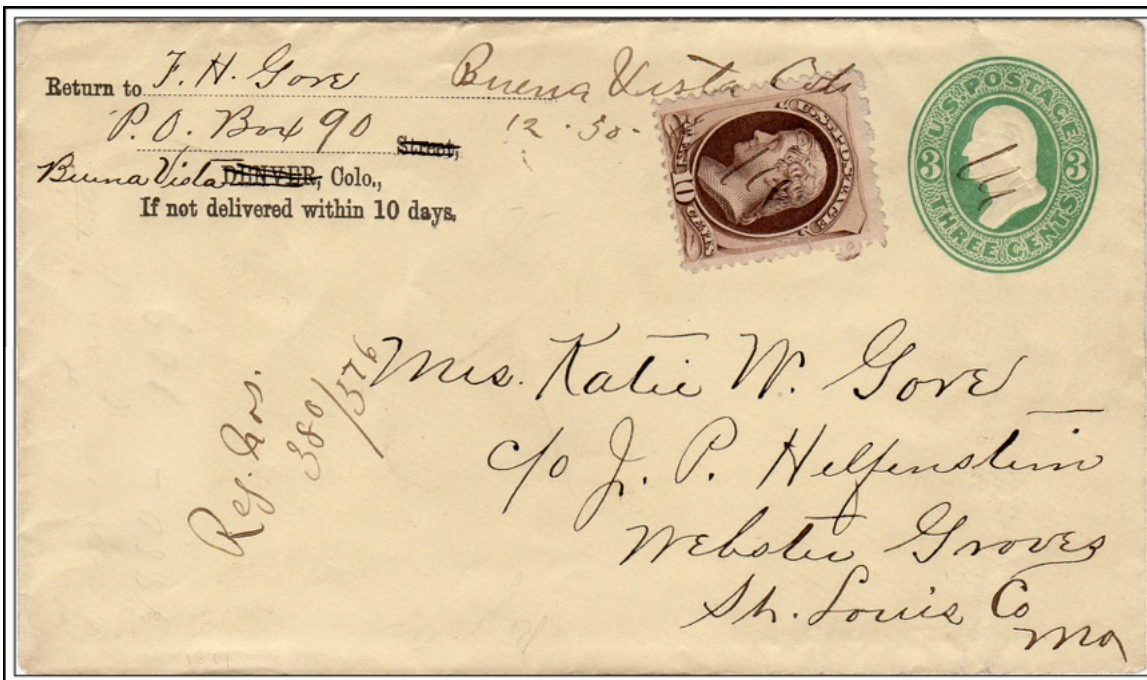 Return to F. H. Gove
P. O. Box 90 Street,
Buena Vista DENVER, Colo.,
If not delivered within 10 days.
Buena Vista Colo
12 - 30 -
U.S. POSTAGE
10
CENTS
U.S. POSTAGE
3 3
THREE CENTS
Reg. Nos.
380/576
Mrs. Katie W. Gove
c/o J. P. Helfenstein
Webster Groves
St. Louis Co
Mo